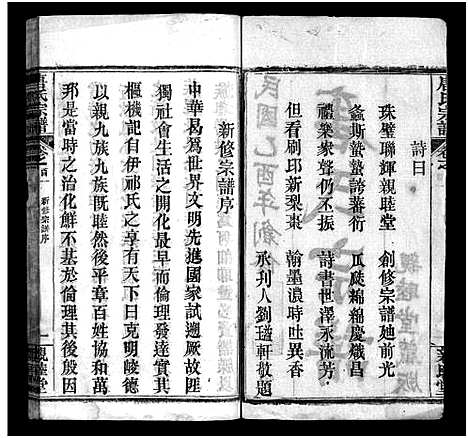 詩曰
珠璧聯輝親睦堂 創修宗譜迪前光
螽斯蟄蟄諸蕃衍 瓜瓞綿綿慶熾昌
禮樂家聲仍不振 詩書世澤永流芳
但看刷印新梨棗 翰墨濃時吐異香
承刋人劉瑞軒敬題
新修宗譜序
中華曷爲世界文明先進國家試遡厥故固
獨社會生活之開化最早而亦倫理發達實其
樞機記自伊祁氏之享有天下曰克明峻德
以親九族九族旣睦然後平章百姓於變時雍
那是當時之治化鮮不基於倫理其嗣後殷因
新修宗譜序
親睦堂
民國乙酉年創修